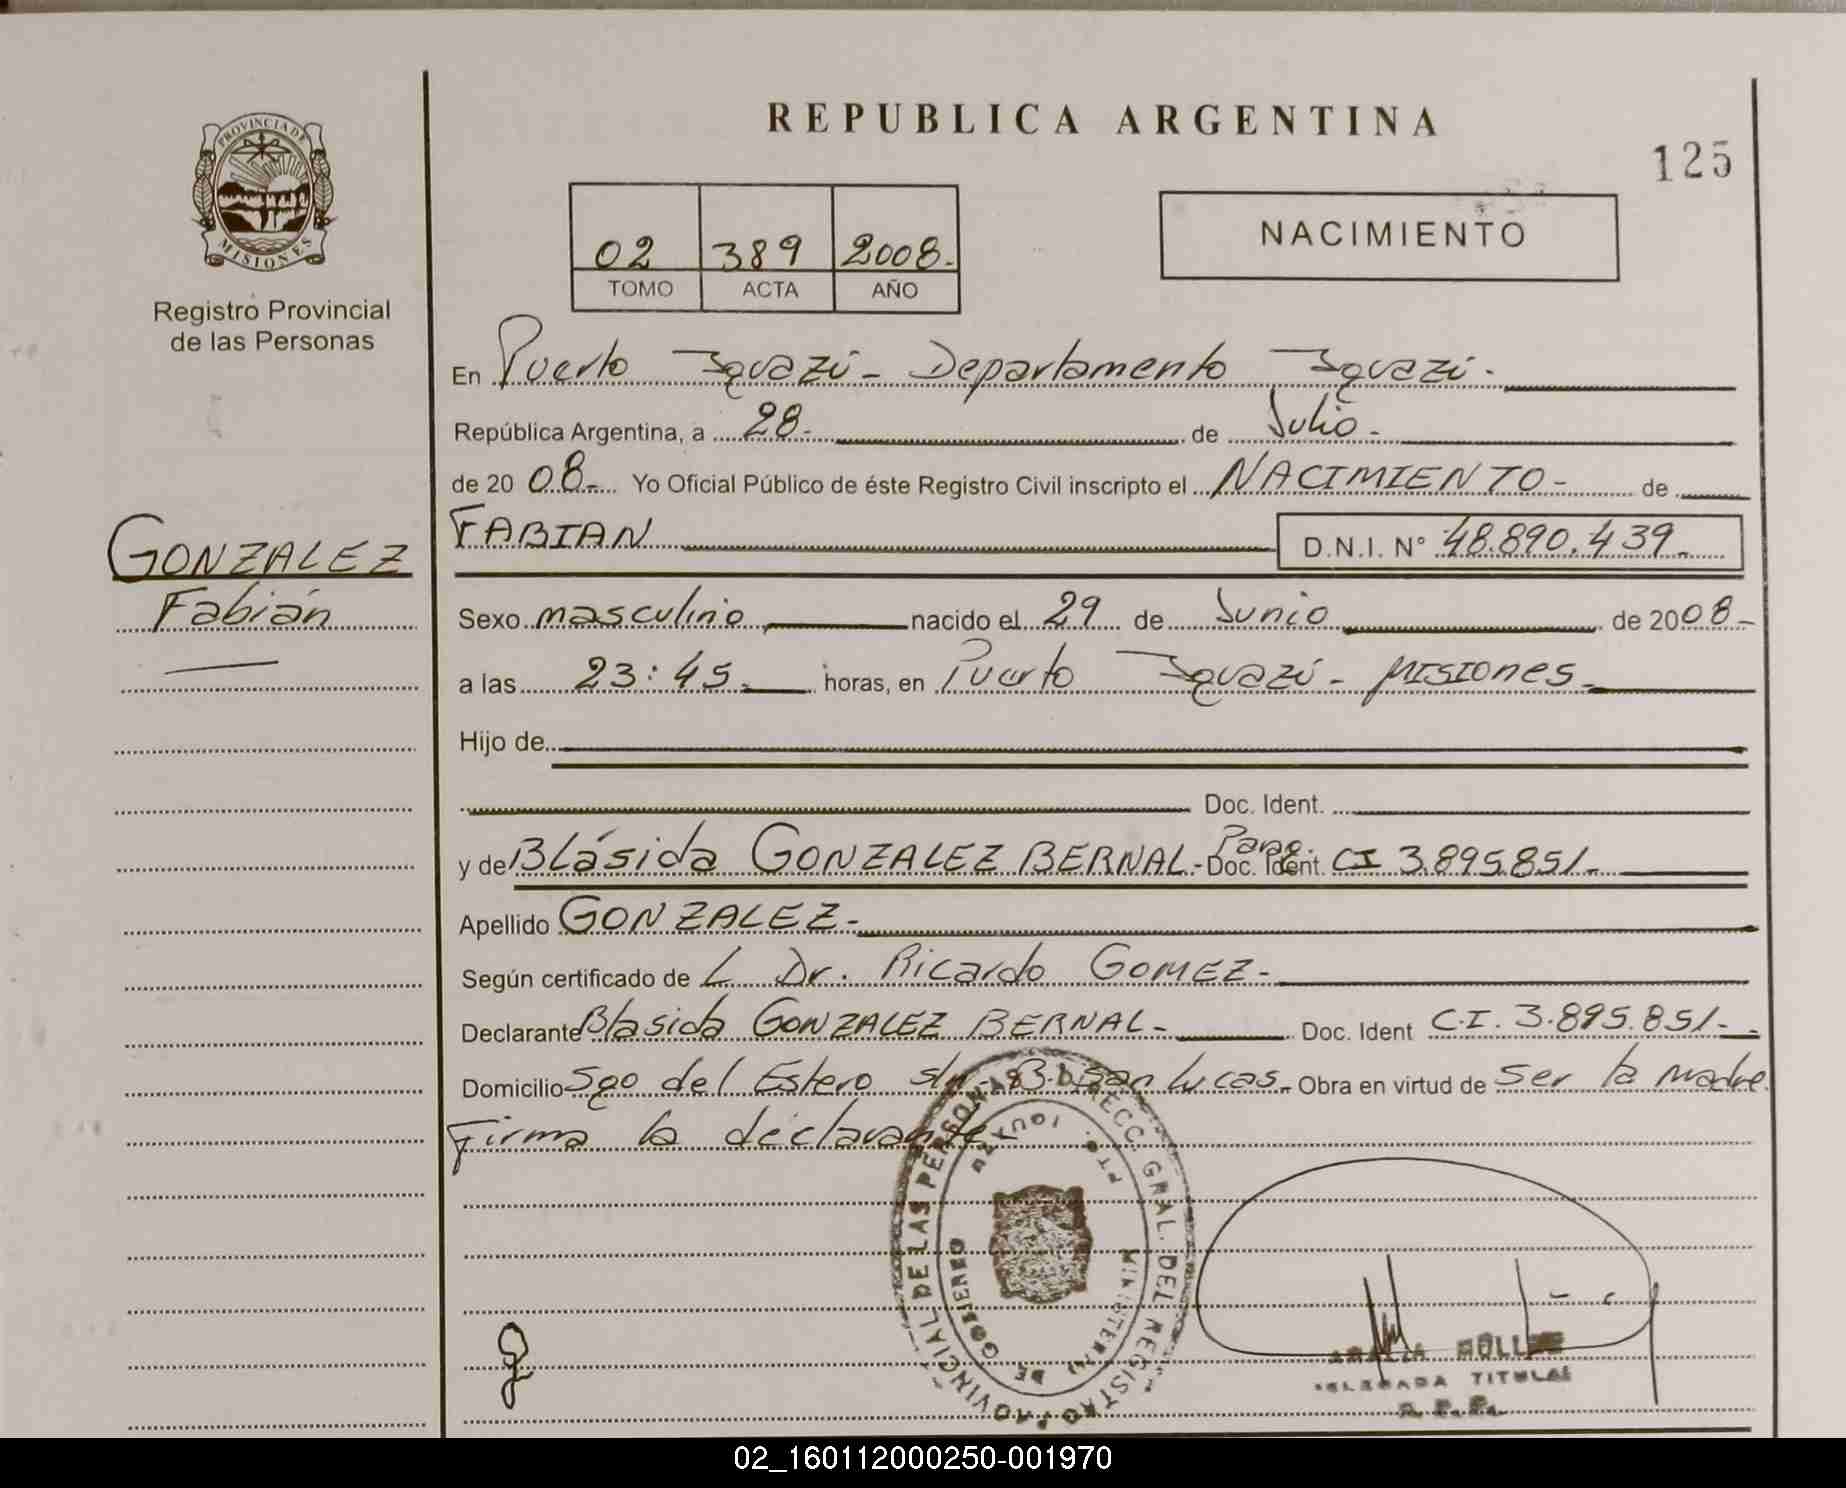 REPUBLICA ARGENTINA
125
PROVINCIA DE
MISIONES
Registro Provincial
de las Personas
02 389 2008.-
TOMO ACTA AÑO
NACIMIENTO
En Puerto Iguazú - Departamento Iguazú.
República Argentina, a 28.- de Julio.-
de 20 08.- Yo Oficial Público de éste Registro Civil inscripto el NACIMIENTO - de
GONZALEZ
Fabián
FABIAN D.N.I. N° 48.890.439.-
Sexo masculino nacido el 29 de Junio de 2008.-
a las 23:45.- horas, en Puerto Iguazú - MISIONES.-
Hijo de
Doc. Ident.
y de Blásida GONZALEZ BERNAL.- Doc. Ident. Parag. CI 3.895.851.-
Apellido GONZALEZ.-
Según certificado de L Dr. Ricardo GOMEZ.-
Declarante Blasida GONZALEZ BERNAL.- Doc. Ident C.I. 3.895.851.-
Domicilio Sgo del Estero s/n - B° San Lucas.- Obra en virtud de ser la madre.
Firma la declarante.-
DIRECC. GRAL. DEL REGISTRO PROVINCIAL DE LAS PERSONAS
MINISTERIO DE GOBIERNO
PTO. IGUAZU
DELEGADA TITULAR
R. P. P.
02_160112000250-001970